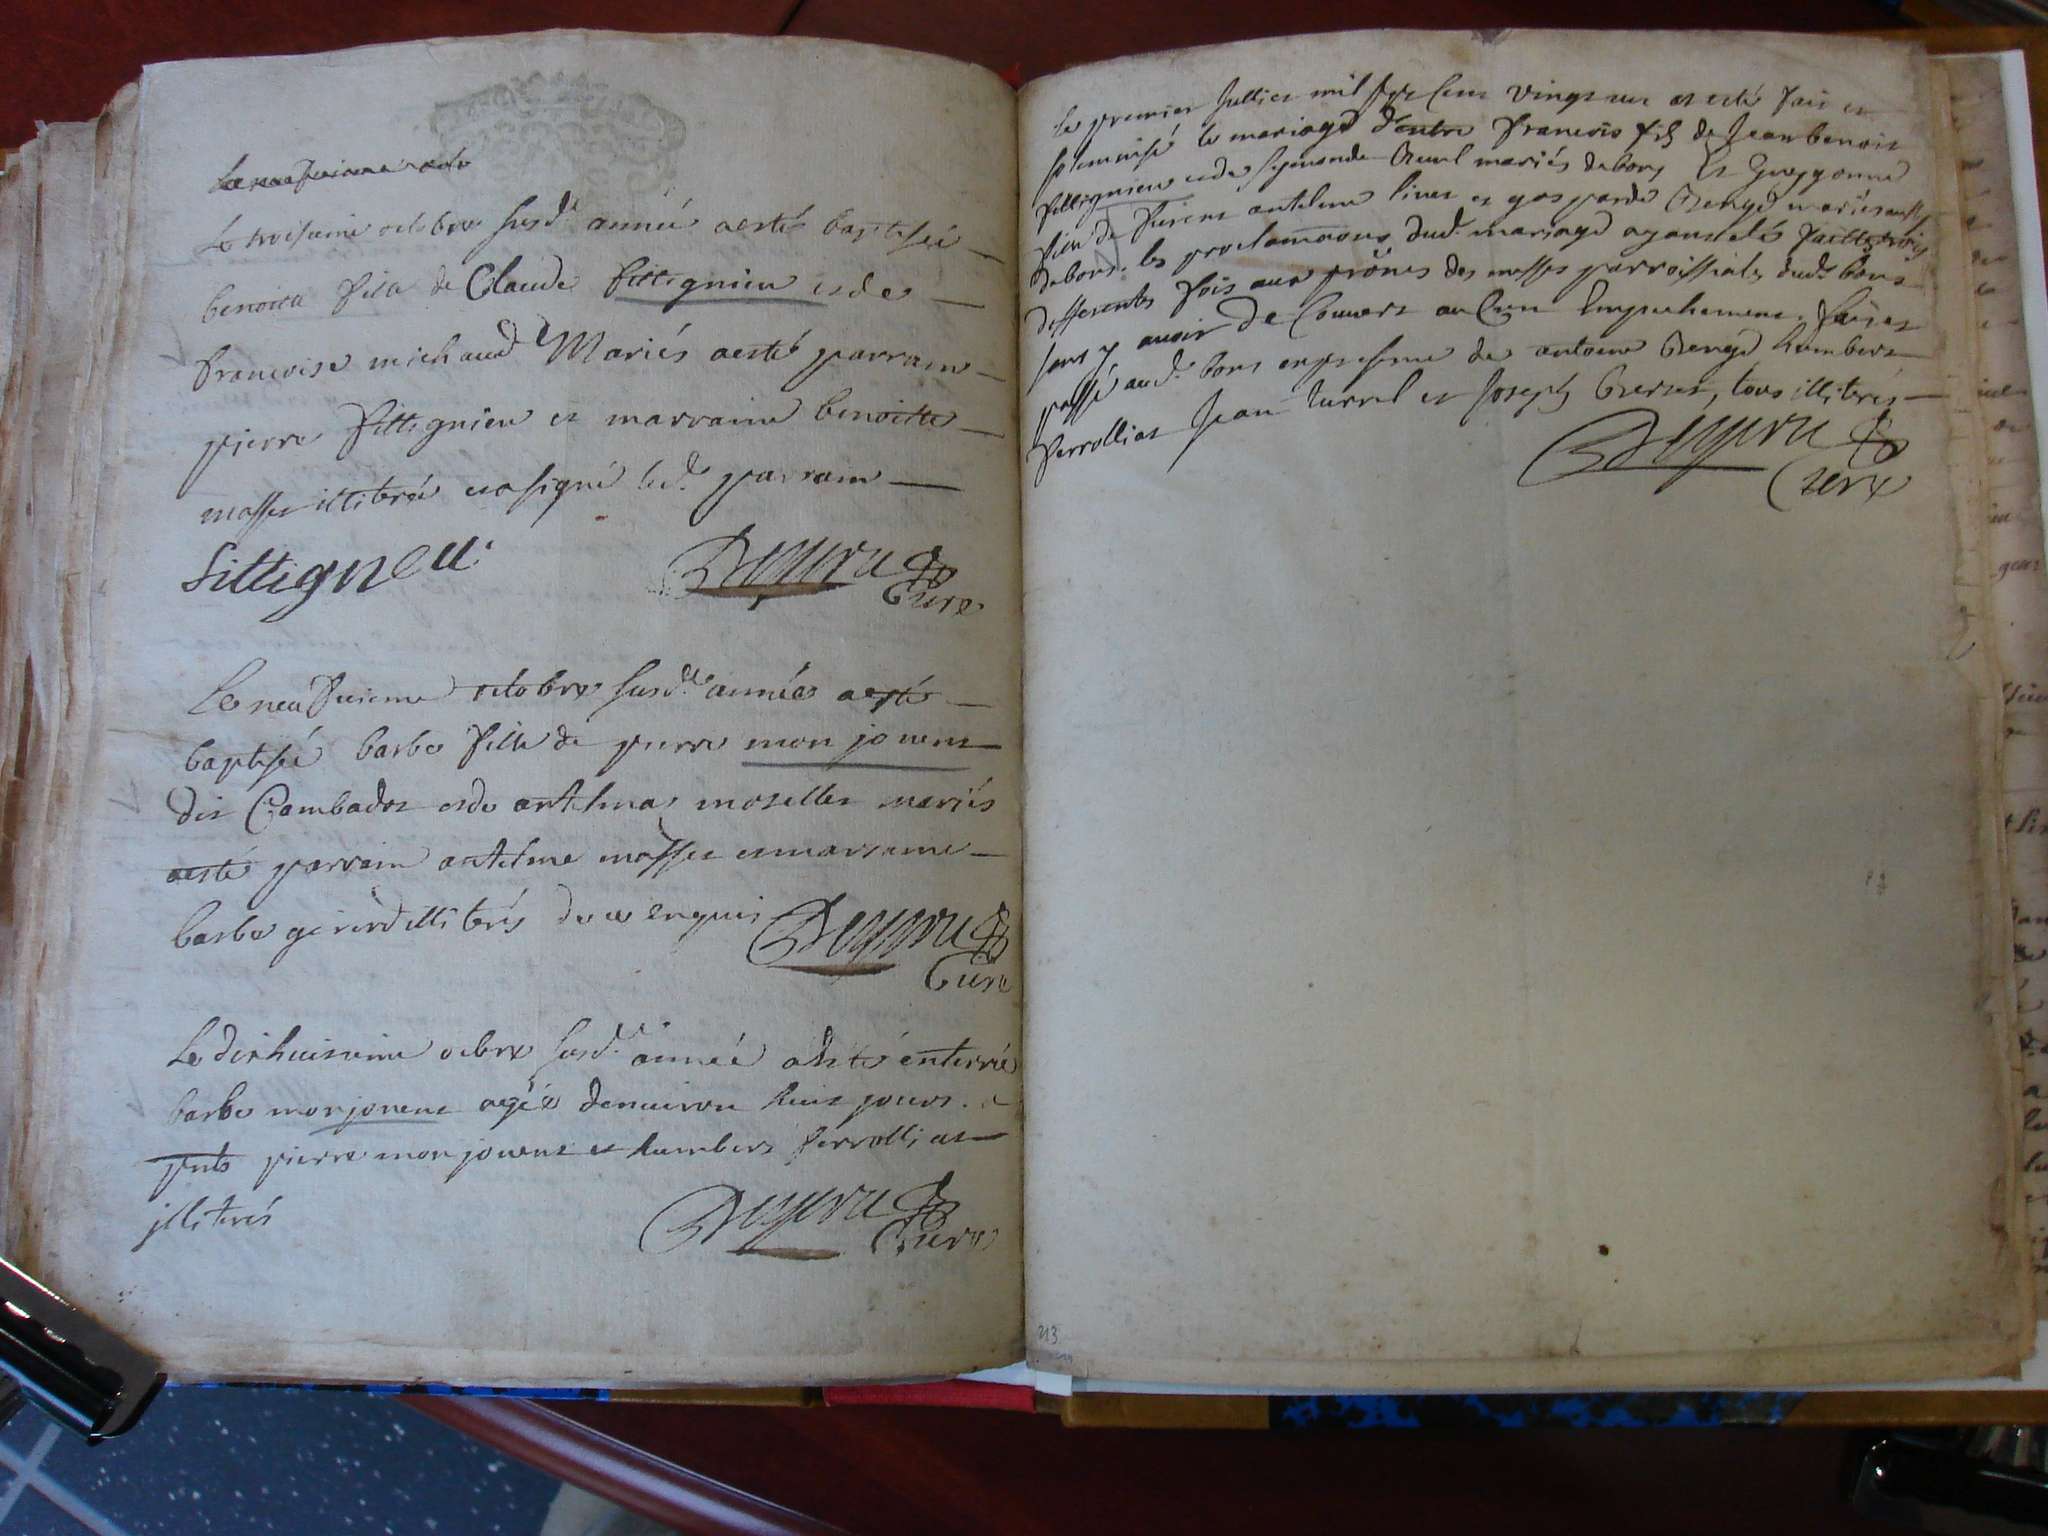 Le neufvieme octo
Le troisieme octobre susd.e année a esté baptisée
benoitte fille de Claude fittignieu et de
francoise michaud Mariés a esté parrain
pierre fittignieu et marraine benoitte
masset illiterée et a signé led. parrain
fittigneu
Cure
Le neufvieme octobre susd.te année a esté
baptisé barbe fille de pierre monjouent
dit Cambadoz et de antelma mosellet mariés
a esté parrain antelme masset et marraine
barbe illiterés de ce enquis
Curé
Le dixhuitieme octbre susd.te année a esté enterrée
barbe monjouent agée denuiron huit jours
pnts pierre monjouent et humbert ferrolliet
illiterés
Curé
Le premier Juilliet mil sept cent vingt un at esté fait et
solemnisé le mariage d'entre francois fils de Jean benoit
fittignieu et de mariés de bons Et Guigonne
fille de antelme livet et gasparde mariés aussy
de bons. les proclamaons dud. mariage ayant etés faittes trois
differentes fois aux prônes des messes parroissiales dud. bons
sans y avoir De Couvert aucun Empechement. fait et
passé aud. bons en presence de antoine humbert
ferrolliet Jean turrel et Joseph tous illiterés
Curé
213